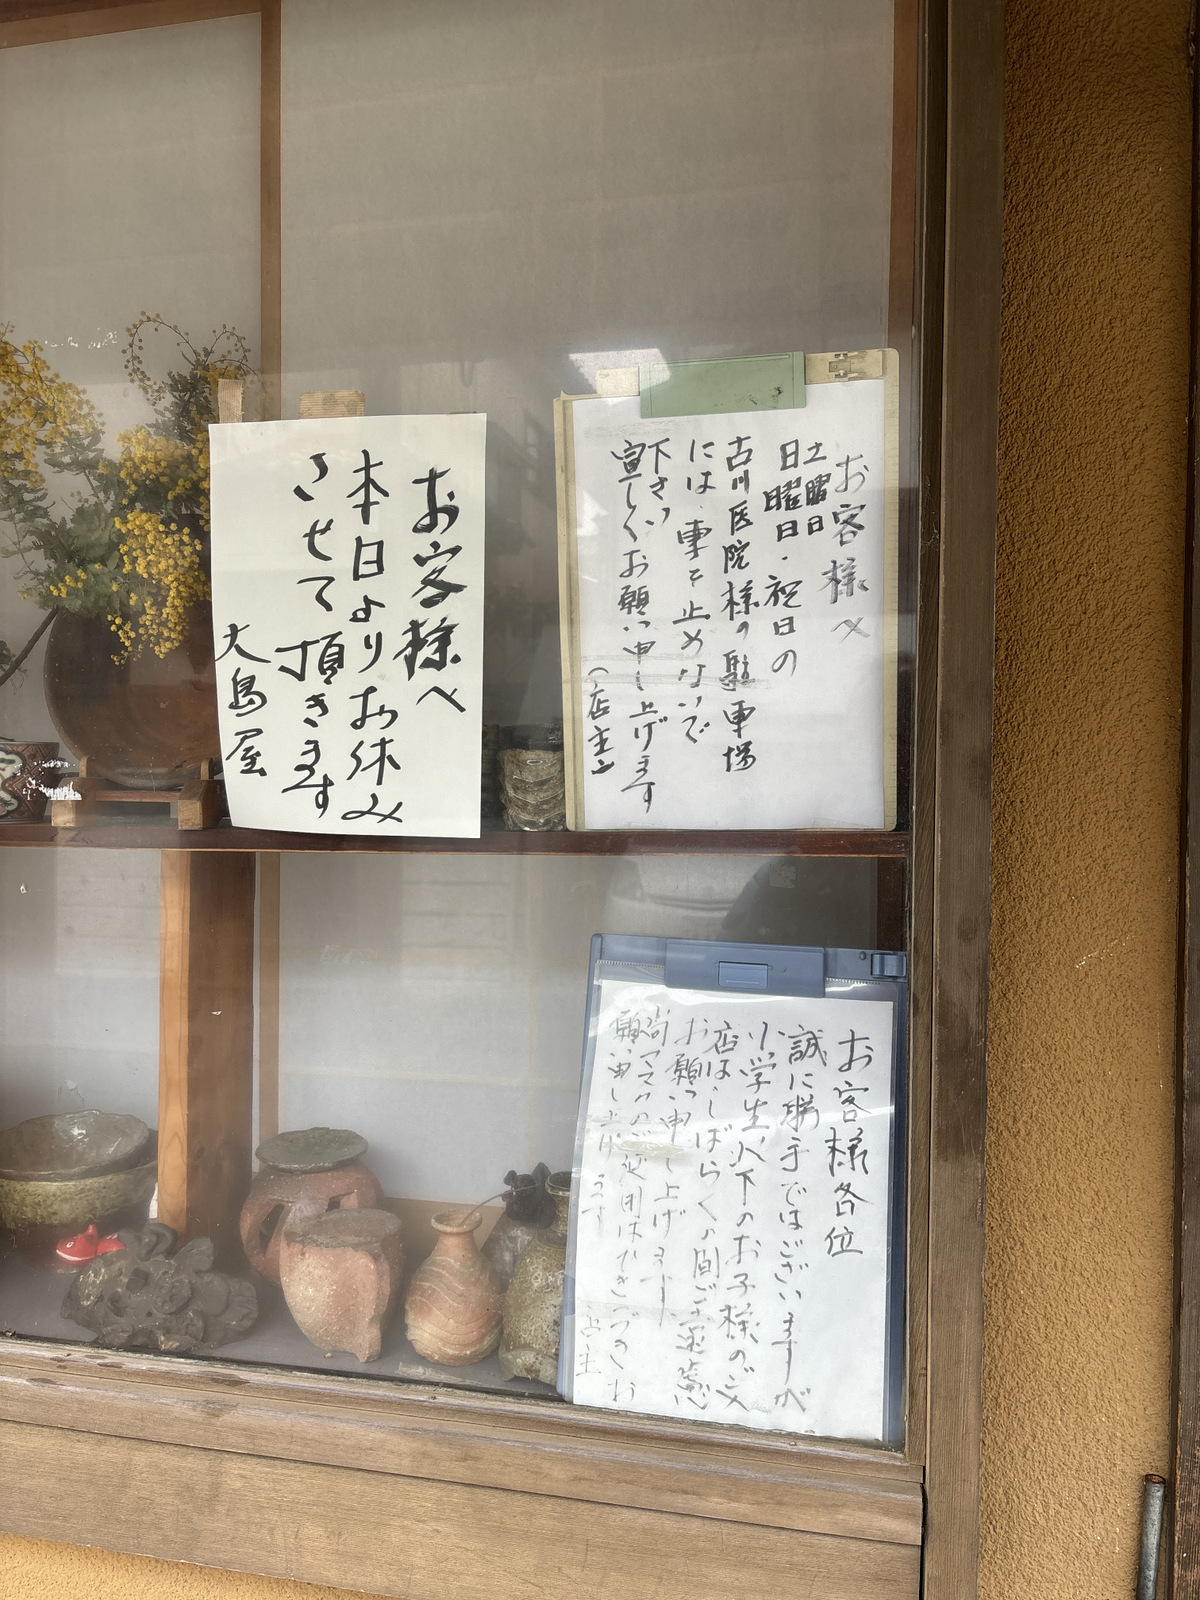 お客様へ
本日よりお休み
させて頂きます
大島屋
お客様へ
土曜日
日曜日・祝日の
古川医院様の駐車場
には車を止めないで
下さい
宜しくお願い申し上げます
(店主)
お客様各位
誠に勝手ではございますが
小学生以下のお子様のご入
店はしばらくの間ご遠慮
お願い申し上げます
尚マスクのご使用はひきつづきお
願い申し上げます
店主